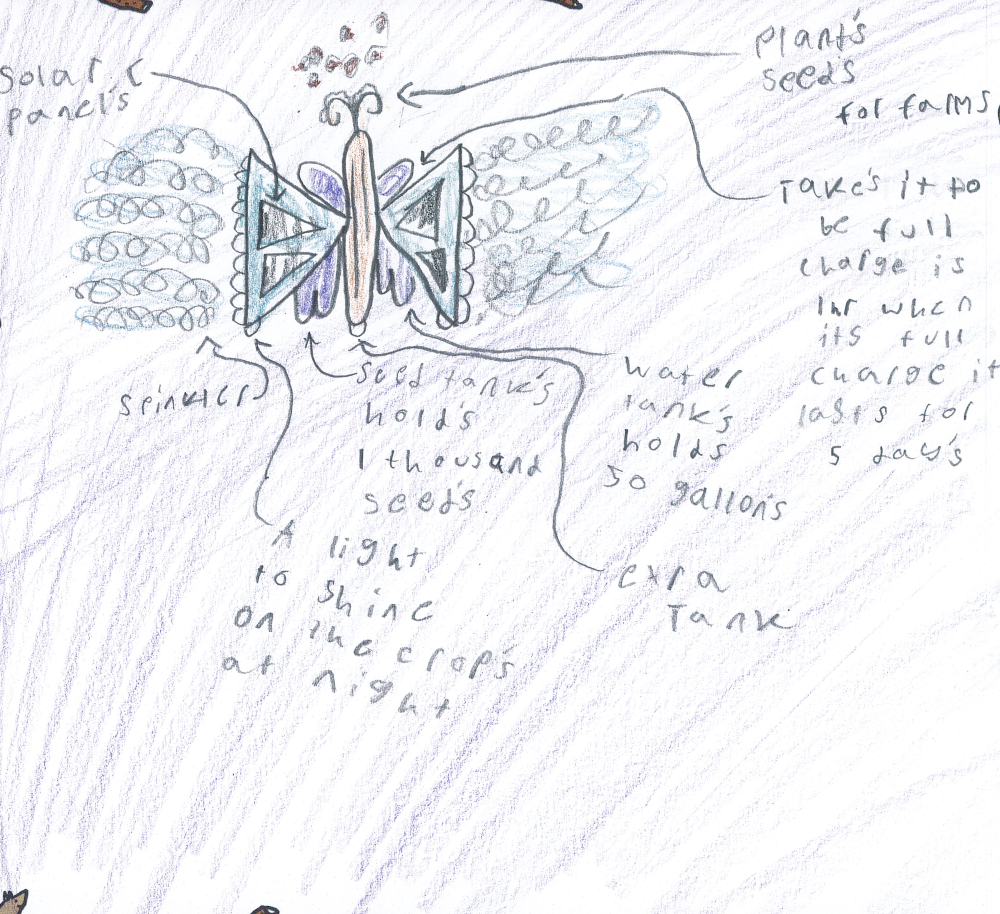 solar
panel's
plant's
seed's
for farms
Take's it to
be full
charge is
1hr when
it's full
charge it
lasts for
5 day's
spinkler
seed tank's
hold's
1 thousand
seed's
water
tank's
holds
50 gallon's
A light
to shine
on the crop's
at night
exra
Tank